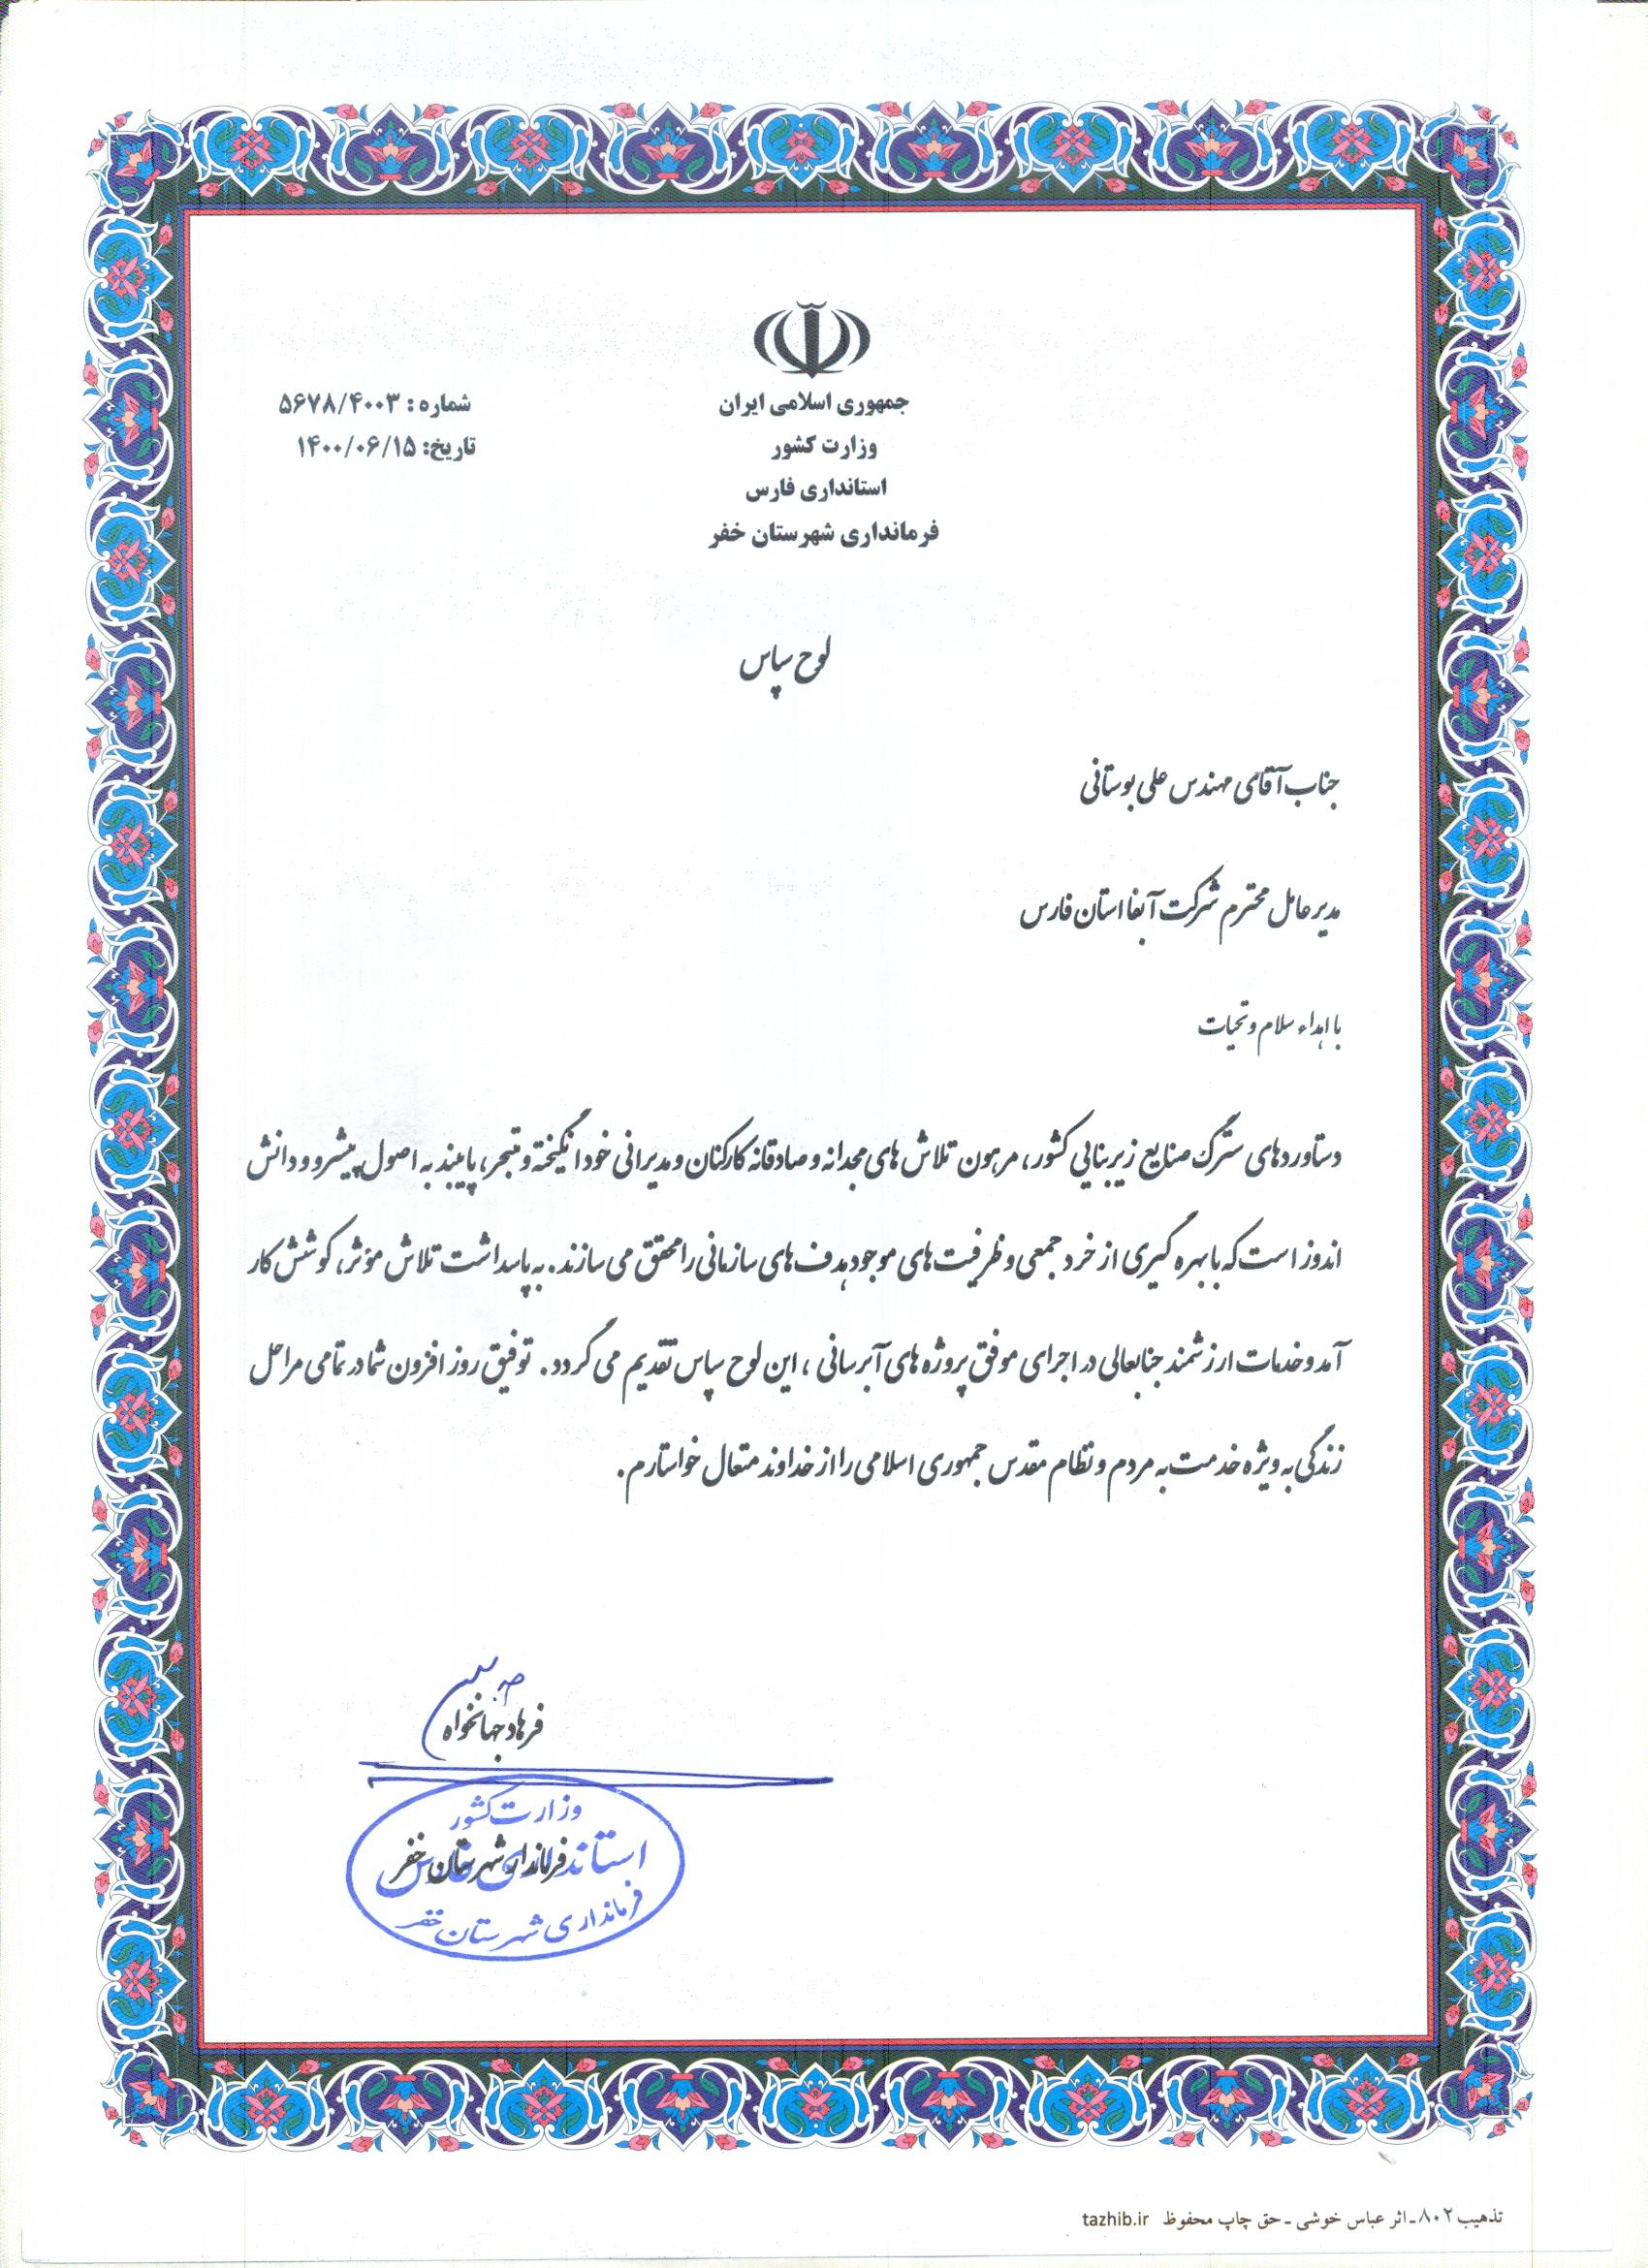 جمهوری اسلامی ایران
وزارت کشور
استانداری فارس
فرمانداری شهرستان خفر
شماره: ۵۶۷۸/۴۰۰۳
تاریخ: ۱۴۰۰/۰۶/۱۵
لوح سپاس
جناب آقای مهندس علی بوستانی
مدیر عامل محترم شرکت آبفا استان فارس
با اهداء سلام و تحیات
دستاوردهای سترگ صنایع زیربنایی کشور، مرهون تلاش های مجدانه و صادقانه کارکنان و مدیرانی خود انگیخته و متبحر، پایبند به اصول پیشرو و دانش
اندوز است که با بهره گیری از خرد جمعی و ظرفیت های موجود هدف های سازمانی را محقق می سازند. به پاسداشت تلاش مؤثر، کوشش کار
آمد و خدمات ارزشمند جنابعالی در اجرای موفق پروژه های آبرسانی ، این لوح سپاس تقدیم می گردد. توفیق روز افزون شما در تمامی مراحل
زندگی به ویژه خدمت به مردم و نظام مقدس جمهوری اسلامی را از خداوند متعال خواستارم.
فرهاد جهانخواه
فرماندار شهرستان خفر
وزارت کشور
استانداری فارس
فرمانداری شهرستان خفر
تذهیب ۸۰۲ـ اثر عباس خوشی ـ حق چاپ محفوظ tazhib.ir